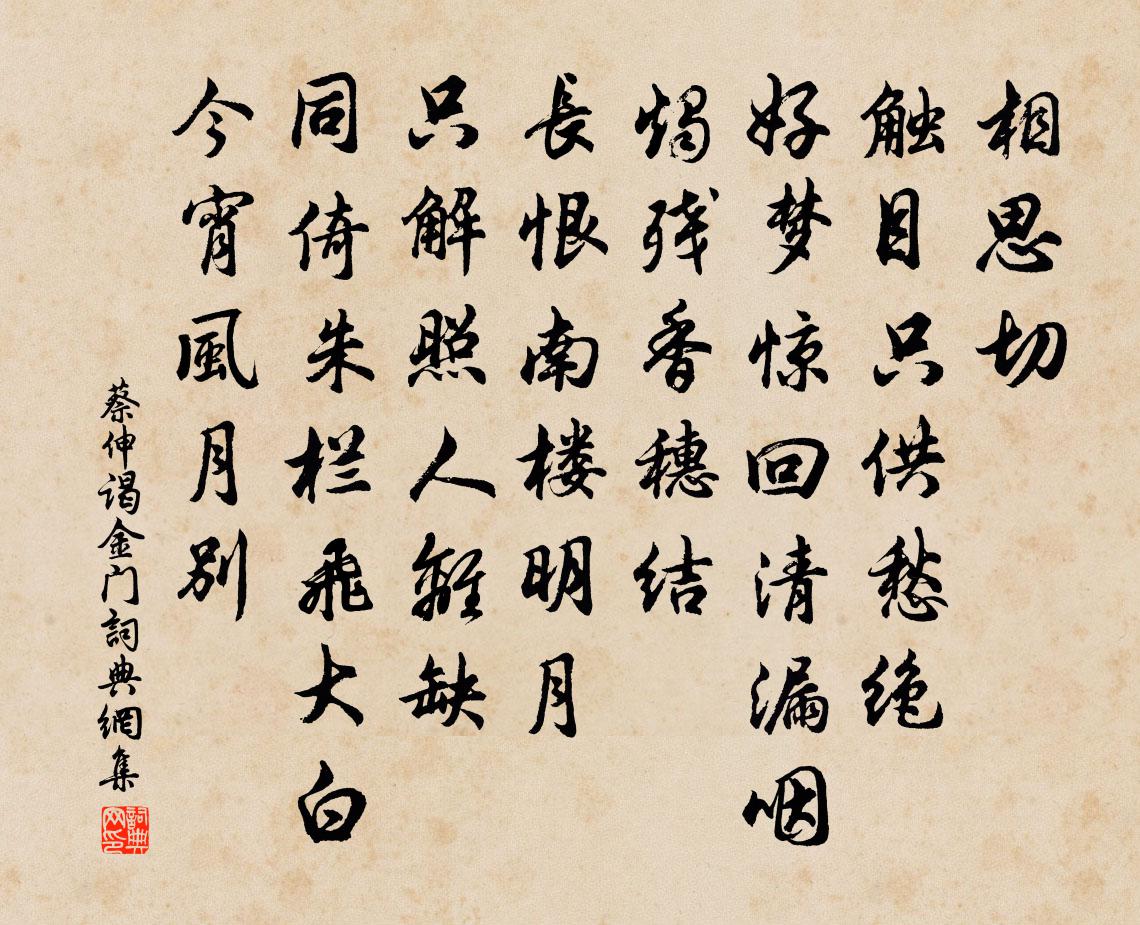 相思切
触目只供愁绝
好梦惊回清漏咽
燭残香穗结
長恨南楼明月
只解照人離缺
同倚朱栏飛大白
今宵風月别
蔡伸谒金门詞典網集
詞典网印